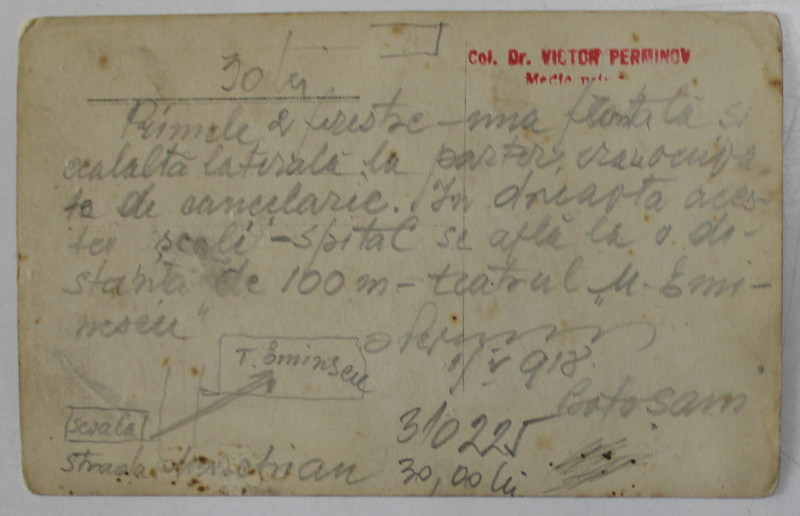 30 lei
Col. Dr. VICTOR PERMINOV
Medic
Primele 2 ferestre – una frontală si
cealaltă laterală, la parter, erau ocupa
te de cancelarie. In dreapta aces-
tei școli – spital se află la o di-
stanță de 100 m – teatrul "M. Emi-
nescu"
1/V 918
Botosani
T. Eminescu
scoala
strada
310225
30,00 lei